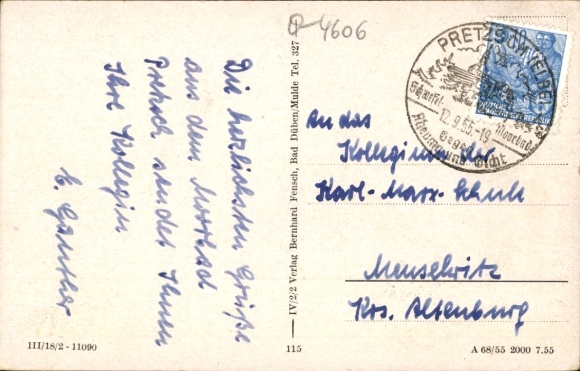 Q 4606
Die herzlichsten Grüße
aus dem Moorbad
Pretzsch sendet Ihnen
Ihre Kollegin
E. Günther
IV/2/2 Verlag Bernhard Fensch, Bad Düben/Mulde Tel. 327
PRETZSCH (ELBE)
12.9.55.-19
Moorbad
gegen
Rheuma und Gicht
An das
Kollegium der
Karl-Marx-Schule
Meuselwitz
Krs. Altenburg
III/18/2 - 11090
115
A 68/55 2000 7.55